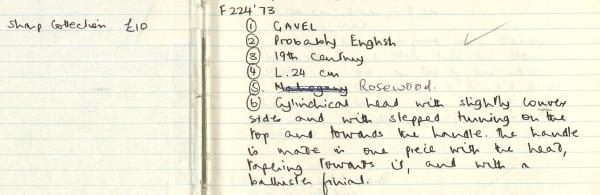 Sharp Collection £10
F224'73
① GAVEL
② Probably English
③ 19th Century
④ L. 24 cm
⑤. Mahogany Rosewood.
⑥ Cylindrical head with slightly convex
sides and with stepped turning on the
top and towards the handle. The handle
is made in one piece with the head,
tapering towards is, and with a
balluster finial.